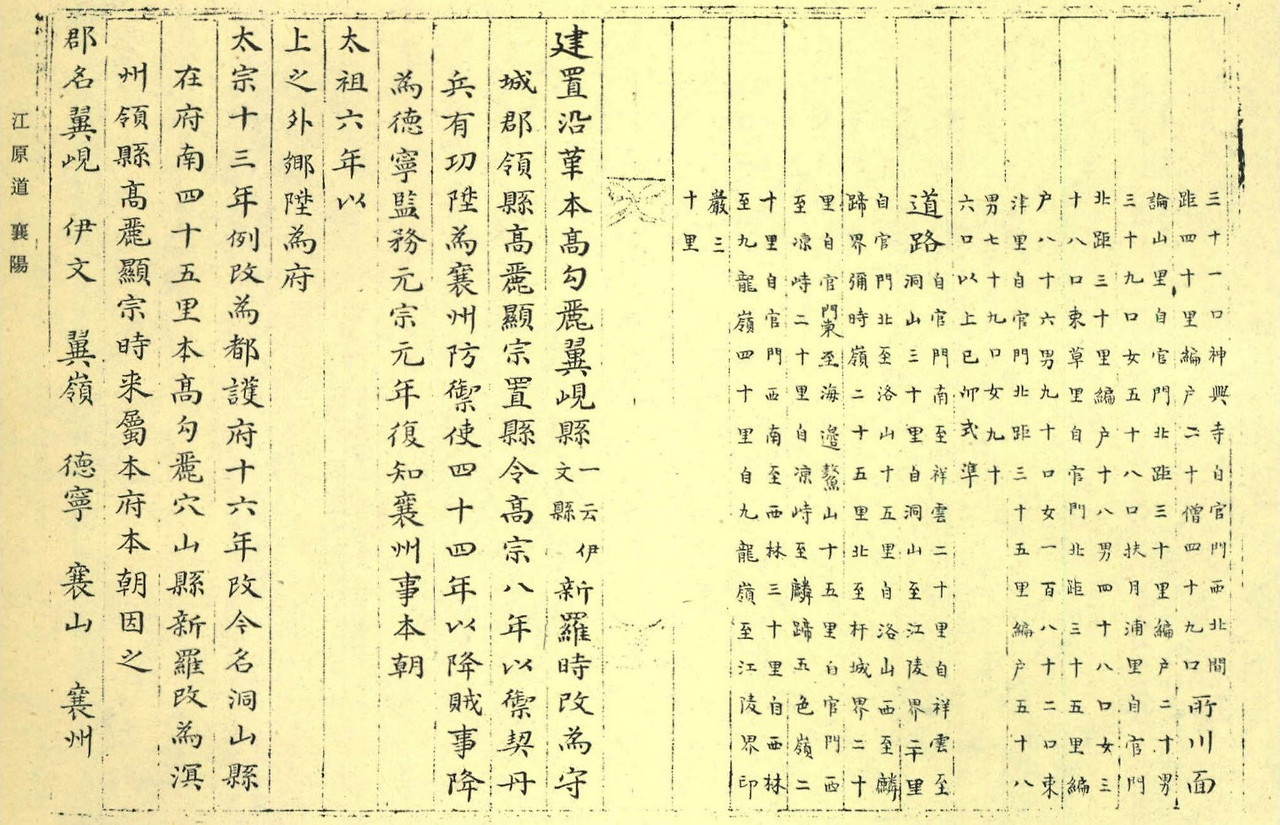 三十一口神興寺自官門西北間
距四十里編户二十僧四十九口所川面
論山里自官門北距三十里編户二十男
三十九口女五十八口扶月浦里自官門
北距三十里編户十八男四十八口女三
十八口束草里自官門北距三十五里編
户八十六男九十口女一百八十二口東
津里自官門北距三十五里編户五十八
男七十九口女九十
六口以上己卯式準
道路自官門南至祥雲二十里自祥雲至
洞山三十里自洞山至江陵界二十里
自官門北至洛山十五里自洛山西至麟
蹄界彌時嶺二十五里北至杆城界二十
里自官門東至海邊鰲山十五里自官門西
至凉峙二十里自凉峙至麟蹄五色嶺二
十里自官門西南至西林三十里自西林
至九龍嶺四十里自九龍嶺至江陵界印
巖三
十里
建置沿革本髙勾麗翼峴縣一云伊文縣新羅時改為守
城郡領縣髙麗顯宗置縣令髙宗八年以禦契丹
兵有功陞為襄州防禦使四十四年以降賊事降
為德寧監務元宗元年復知襄州事本朝
太祖六年以
上之外鄉陞為府
太宗十三年例改為都護府十六年改今名洞山縣
在府南四十五里本髙勾麗穴山縣新羅改為溟
州領縣髙麗顯宗時来屬本府本朝因之
郡名翼峴 伊文 翼嶺 德寧 襄山 襄州
江原道 襄陽